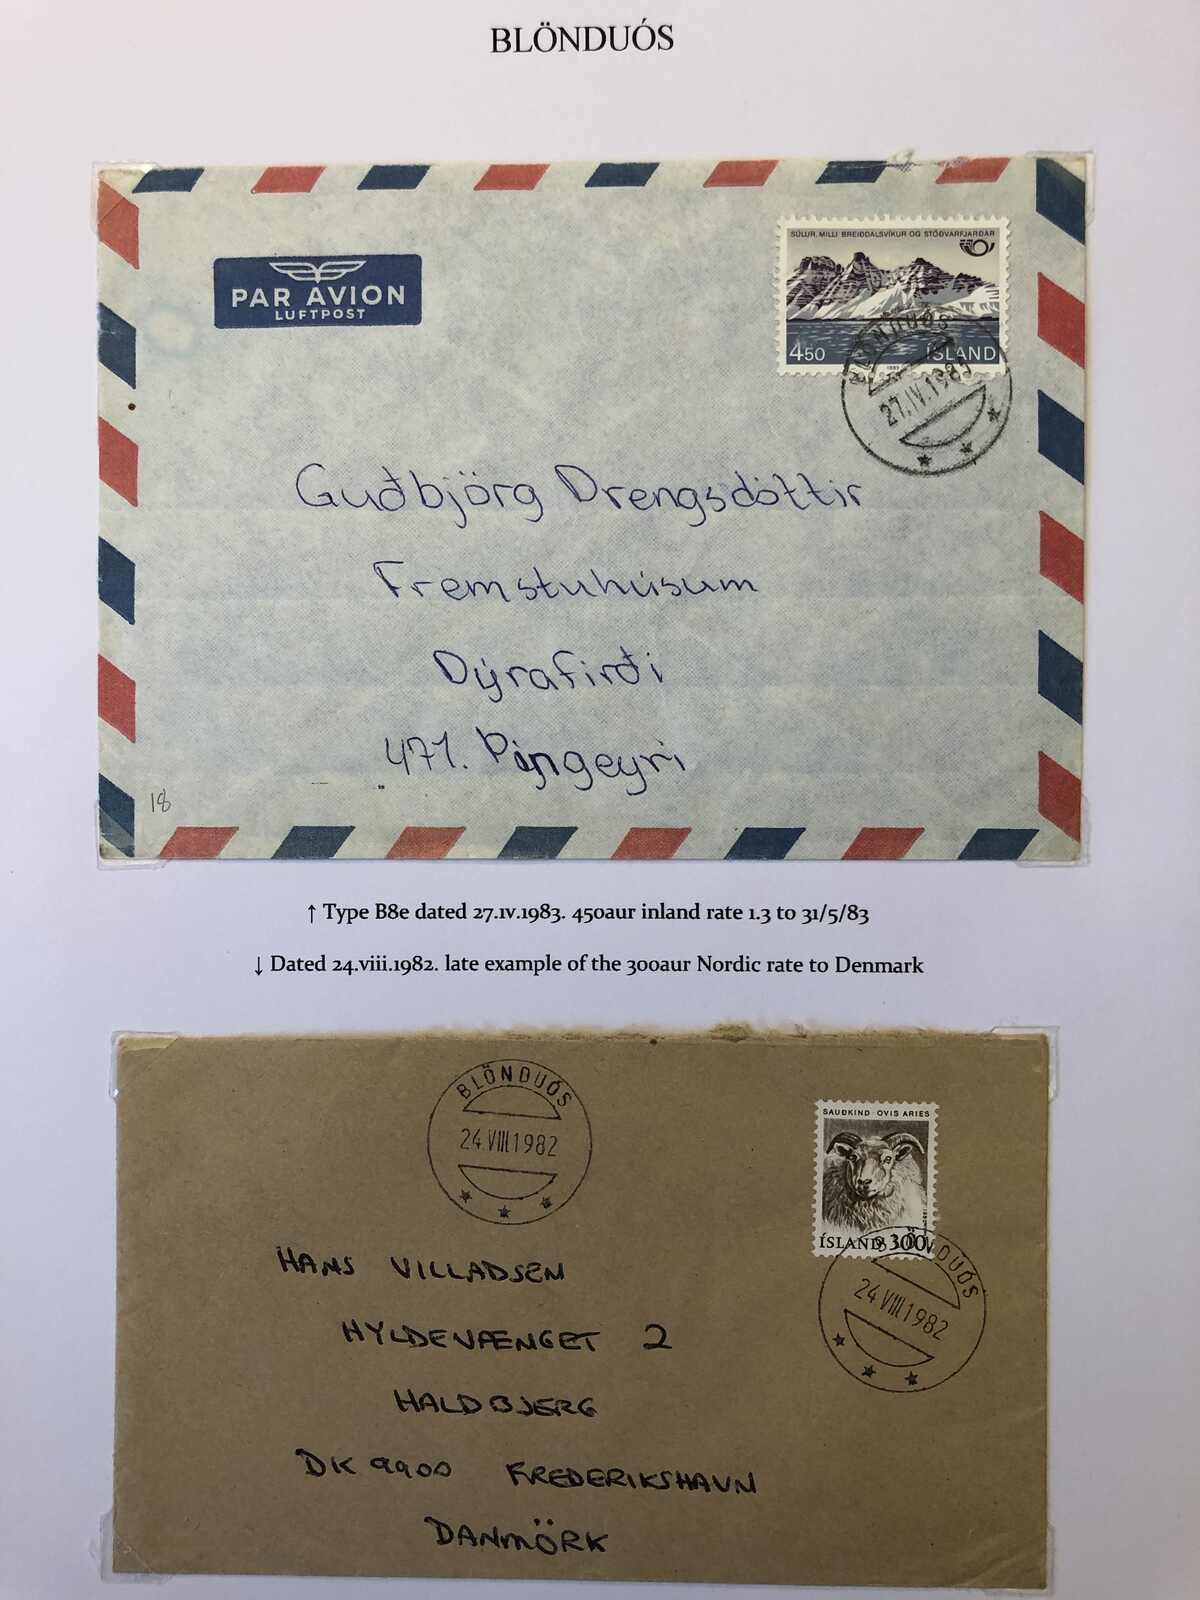 BLÖNDUÓS
PAR AVION
LUFTPOST
SÚLUR, MILLI BREIÐDALSVÍKUR OG STÖÐVARFJARÐAR
450 ÍSLAND
BLÖNDUÓS
27.IV.1983
Guðbjörg Drengsdóttir
Fremstuhúsum
Dýrafirði
471. Þingeyri
18
↑ Type B8e dated 27.iv.1983. 450aur inland rate 1.3 to 31/5/83
↓ Dated 24.viii.1982. late example of the 300aur Nordic rate to Denmark
BLÖNDUÓS
24.VIII.1982
SAUÐKIND OVIS ARIES
ÍSLAND 300
BLÖNDUÓS
24.VIII.1982
HANS VILLADSEN
HYLDEVÆNGET 2
HALDBJERG
DK 9900 FREDERIKSHAVN
DANMÖRK